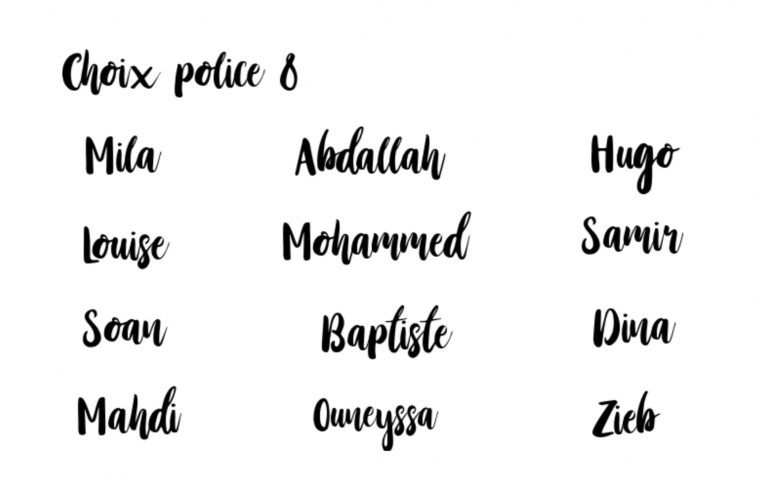 Choix police 8
Mila Abdallah Hugo
Louise Mohammed Samir
Soan Baptiste Dina
Mahdi Ouneyssa Zieb